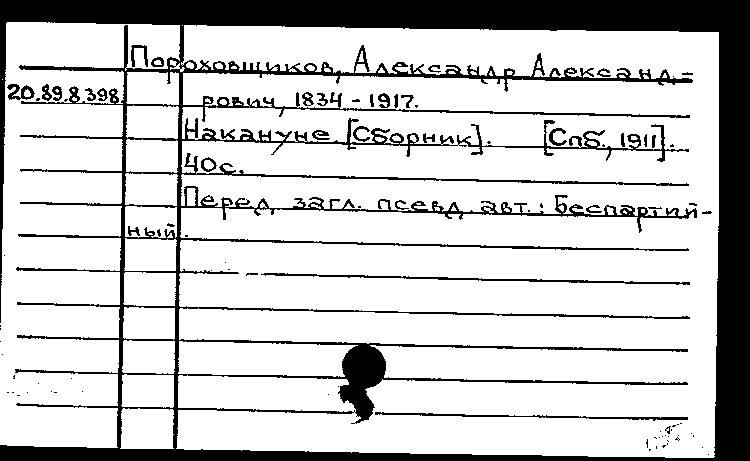 Пороховщиков, Александр Александ=
20.89.8.398. рович, 1834 - 1917.
Накануне. [Сборник]. [Спб., 1911].
40с.
Перед загл. псевд. авт.: Беспартий-
ный.